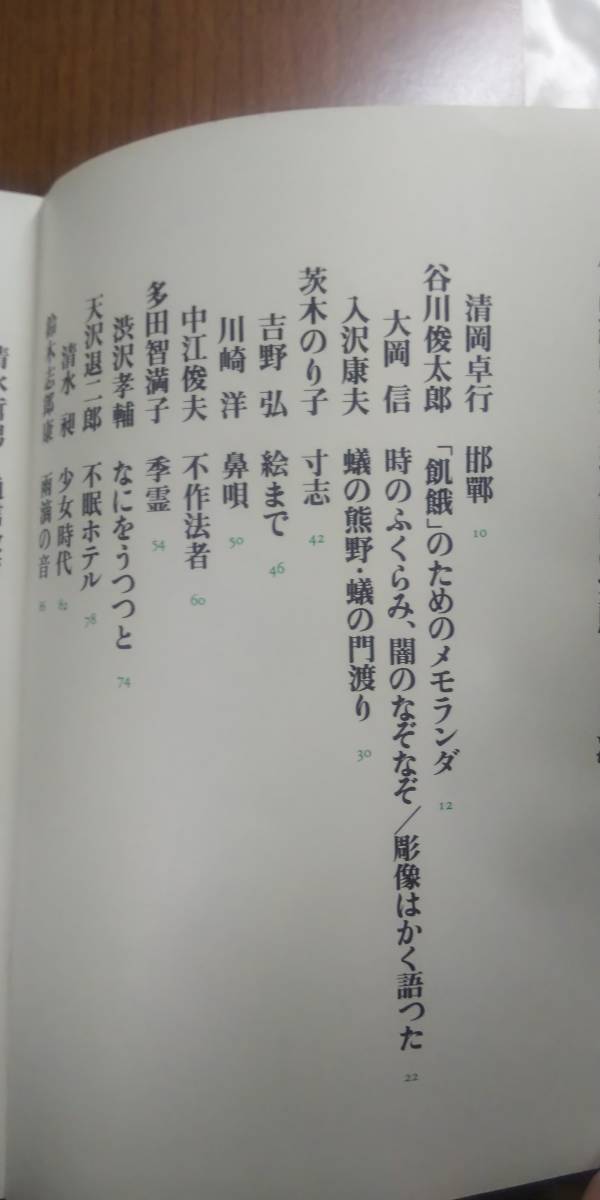 清岡卓行 邯鄲 10
谷川俊太郎 「飢餓」のためのメモランダ 12
大岡 信 時のふくらみ、闇のなぞなぞ／彫像はかく語つた 22
入沢康夫 蟻の熊野・蟻の門渡り 30
茨木のり子 寸志 42
吉野 弘 絵まで 46
川崎 洋 鼻唄 50
中江俊夫 不作法者 60
多田智満子 季霊 54
渋沢孝輔 なにをうつつと 74
天沢退二郎 不眠ホテル 78
清水 昶 少女時代 82
鈴木志郎康 雨滴の音